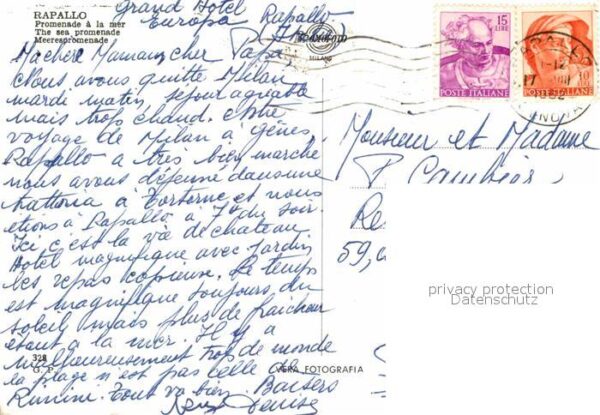 Grand Hotel
Europa Rapallo
RAPALLO
Promenade à la mer
The sea promenade
Meerespromenade
MILANO
15
LIRE
POSTE ITALIANE
10
POSTE ITALIANE
Ma chère Maman, cher Papa
Nous avons quitté Milan
mardi matin, séjour agréable
mais trop chaud. Notre
voyage de Milan à Gênes
Rapallo a très bien marché
nous avons déjeuné dans une
trattoria à Tortone et nous
étions à Rapallo à 7h du soir.
Ici c'est la vie de château.
Hotel magnifique avec jardin
les repas copieux. Le temps
est magnifique toujours du
soleil mais plus de fraîcheur
étant à la mer. Il y a
malheureusement trop de monde
la plage n'est pas belle
Rimini. Tout va bien. Baisers
Denise
Monsieur et Madame
P. Cambier
Re
59,
privacy protection
Datenschutz
328
G. P.
VERA FOTOGRAFIA